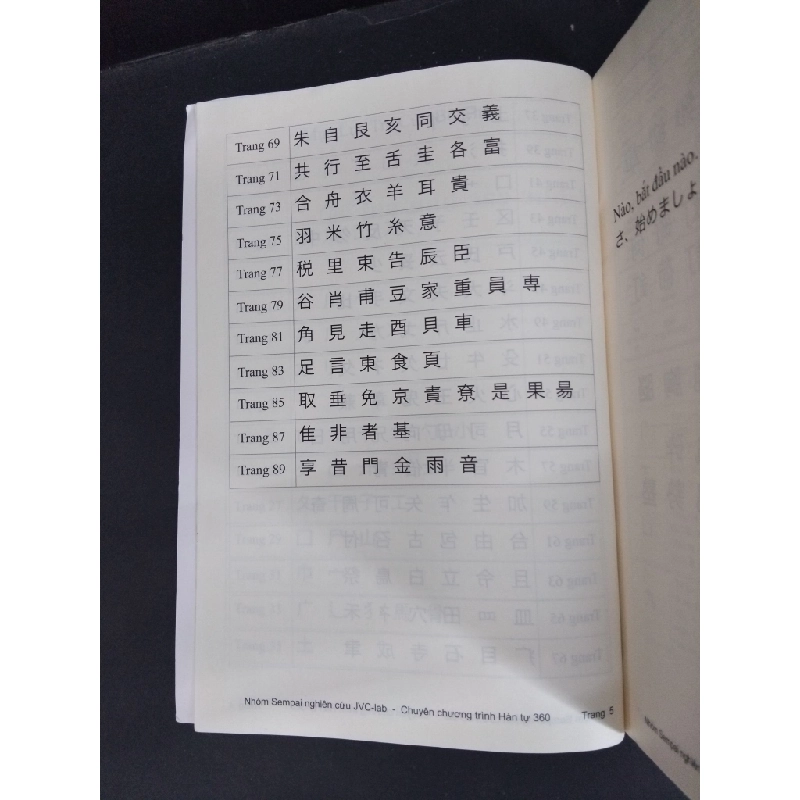 Trang 69 朱 自 艮 亥 同 交 義
Trang 71 共 行 至 舌 圭 各 富
Trang 73 合 舟 衣 羊 耳 貴
Trang 75 羽 米 竹 糸 意
Trang 77 税 里 束 告 辰 臣
Trang 79 谷 肖 甫 豆 家 重 員 専
Trang 81 角 見 走 西 貝 車
Trang 83 足 言 東 食 頁
Trang 85 取 垂 免 京 責 尞 是 果 易
Trang 87 隹 非 者 基
Trang 89 享 昔 門 金 雨 音
Nhóm Sempai nghiên cứu JVC-lab - Chuyên chương trình Hán tự 360 Trang 5
Nào, bắt đầu nào.
さ、始めましょ
Nhóm Sempai nghiên